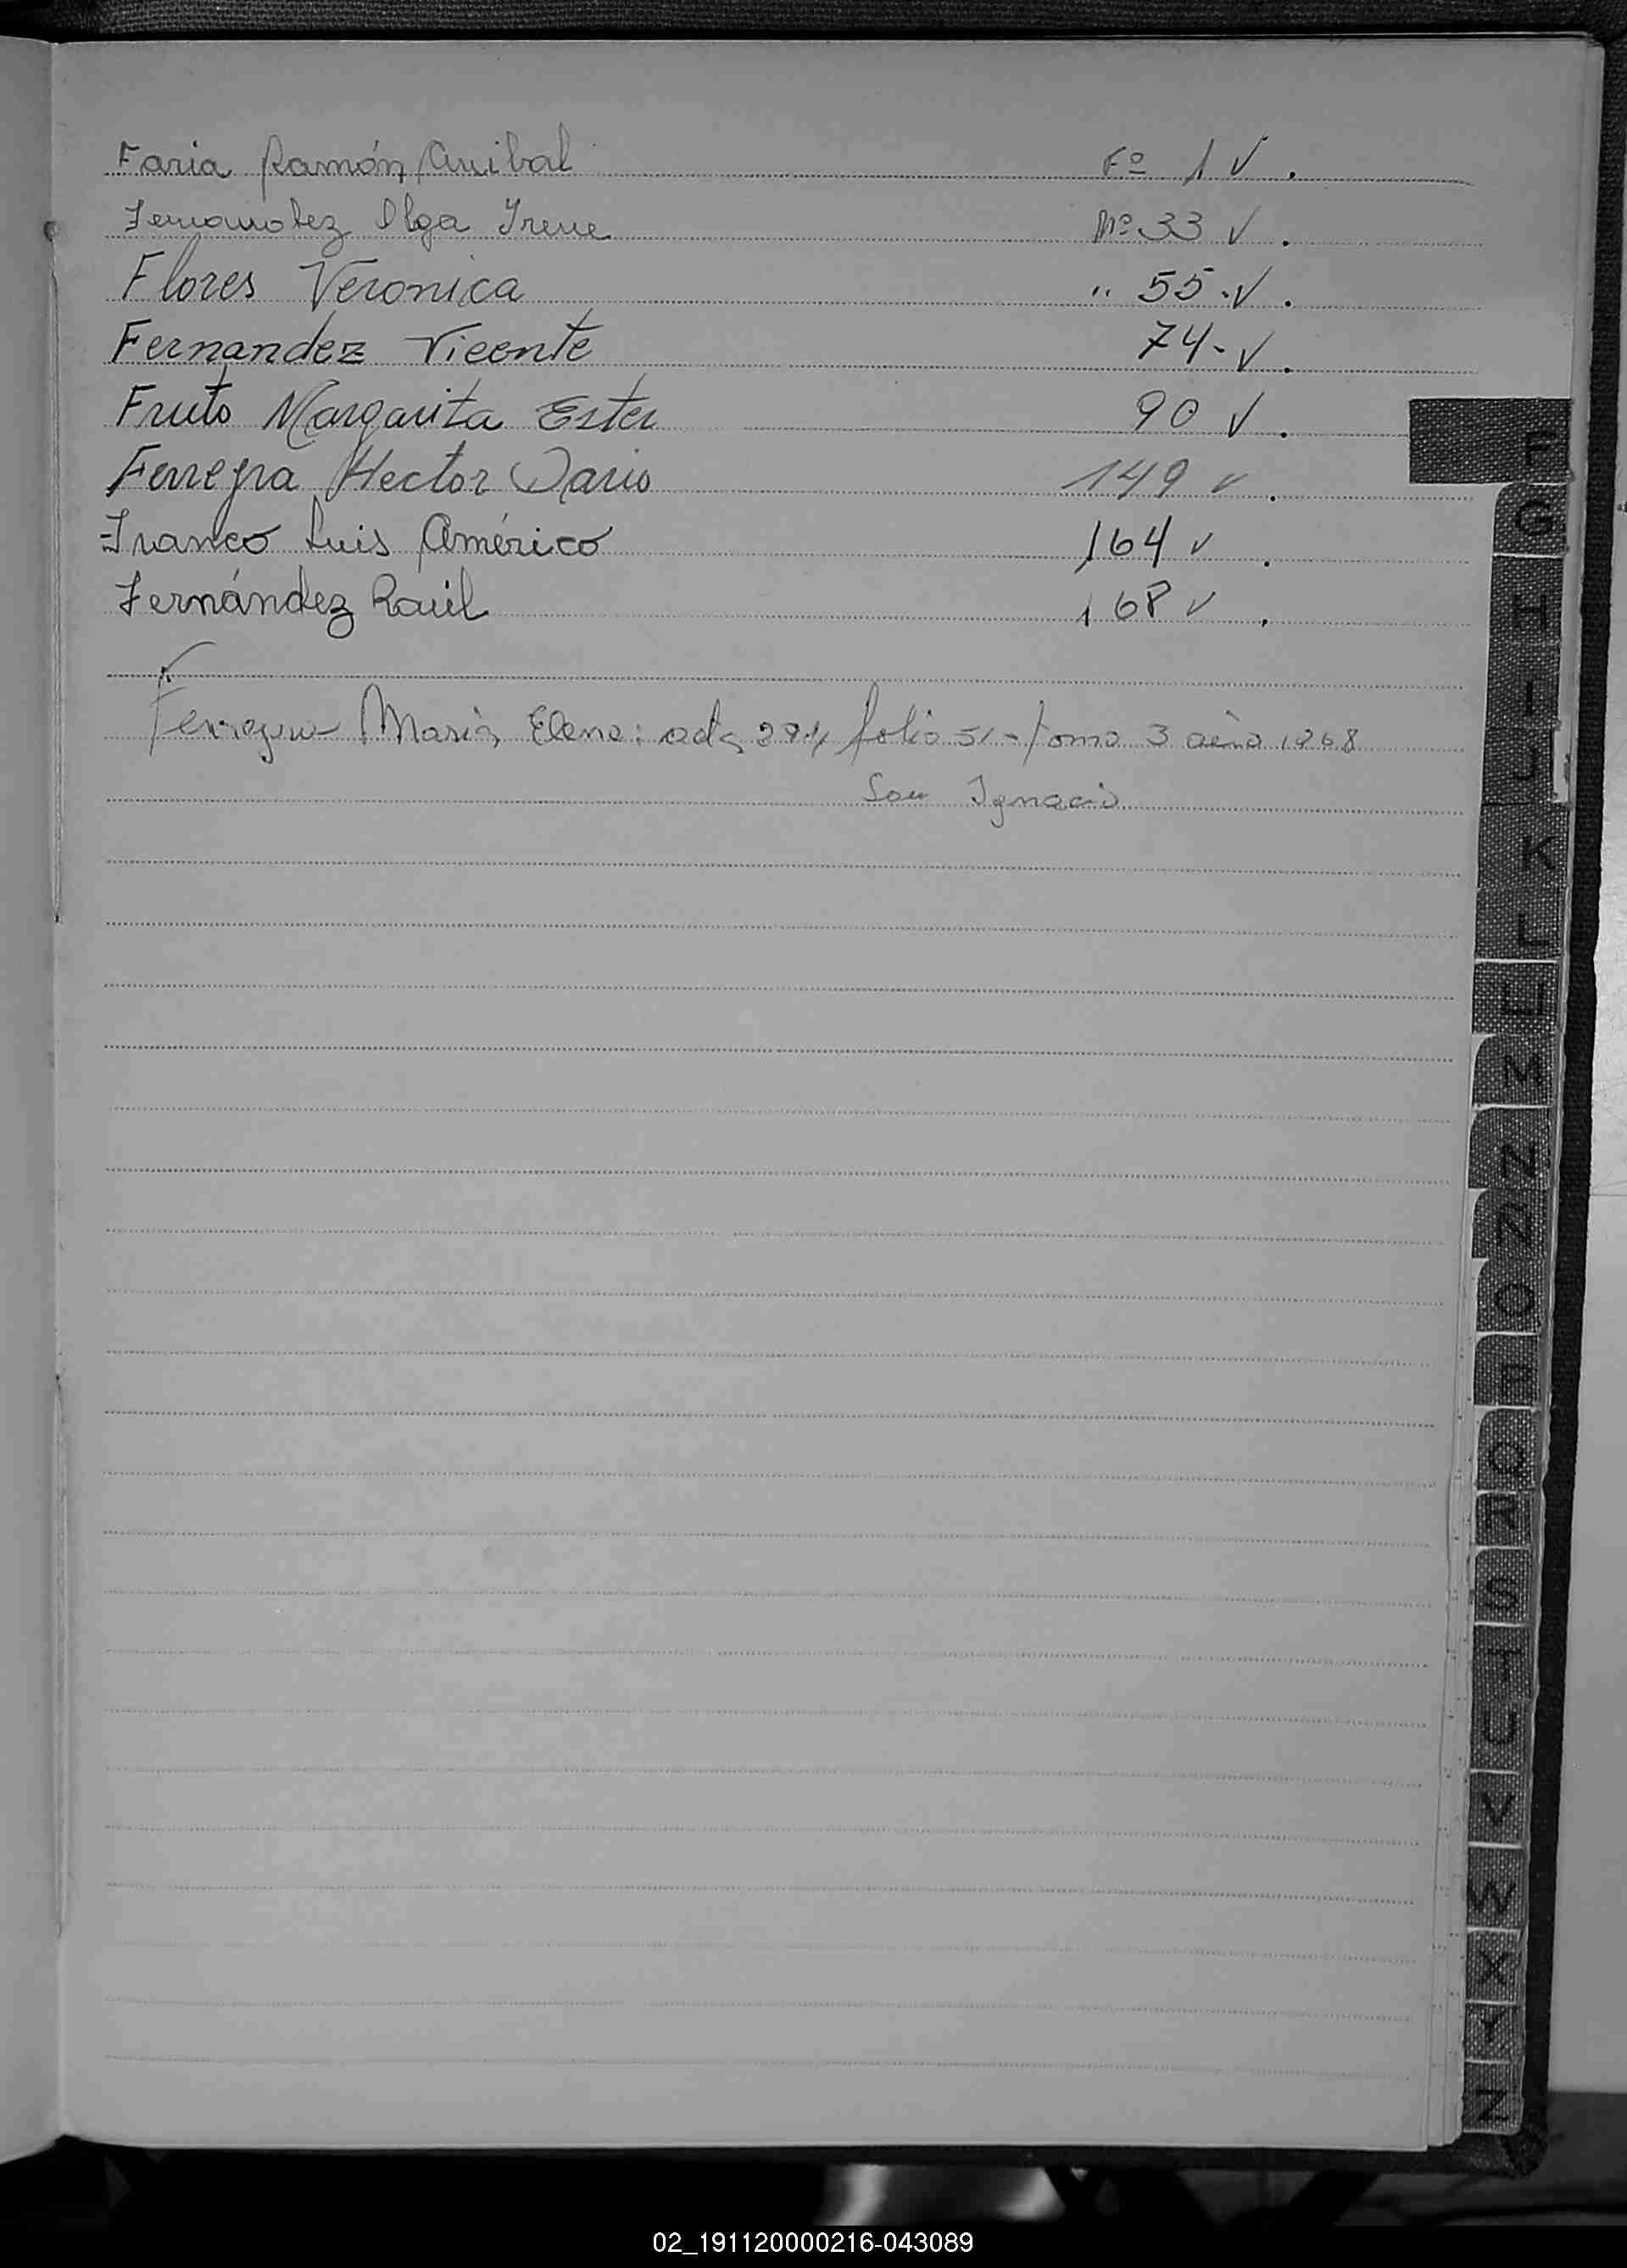 Faria Ramón Anibal Fº 1 ✓.
Fernandez Olga Irene Nº 33 ✓.
Flores Veronica " 55-✓.
Fernandez Vicente 74-✓.
Fruto Margarita Ester 90 ✓.
Ferreyra Hector Dario 149 ✓.
Franco Luis Américo 164 ✓.
Fernández Raúl 168 ✓.
Ferreyra María Elena: acta folio 51-tomo 3 año 1968
San Ignacio
F
G
H
I
J
K
L
LL
M
N
Ñ
O
P
Q
R
S
T
U
V
W
X
Y
Z
02_191120000216-043089